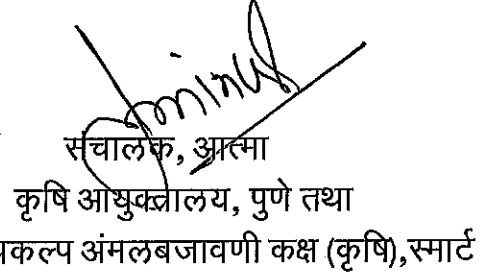 संचालक, आत्मा
कृषि आयुक्तालय, पुणे तथा
कल्प अंमलबजावणी कक्ष (कृषि),स्मार्ट